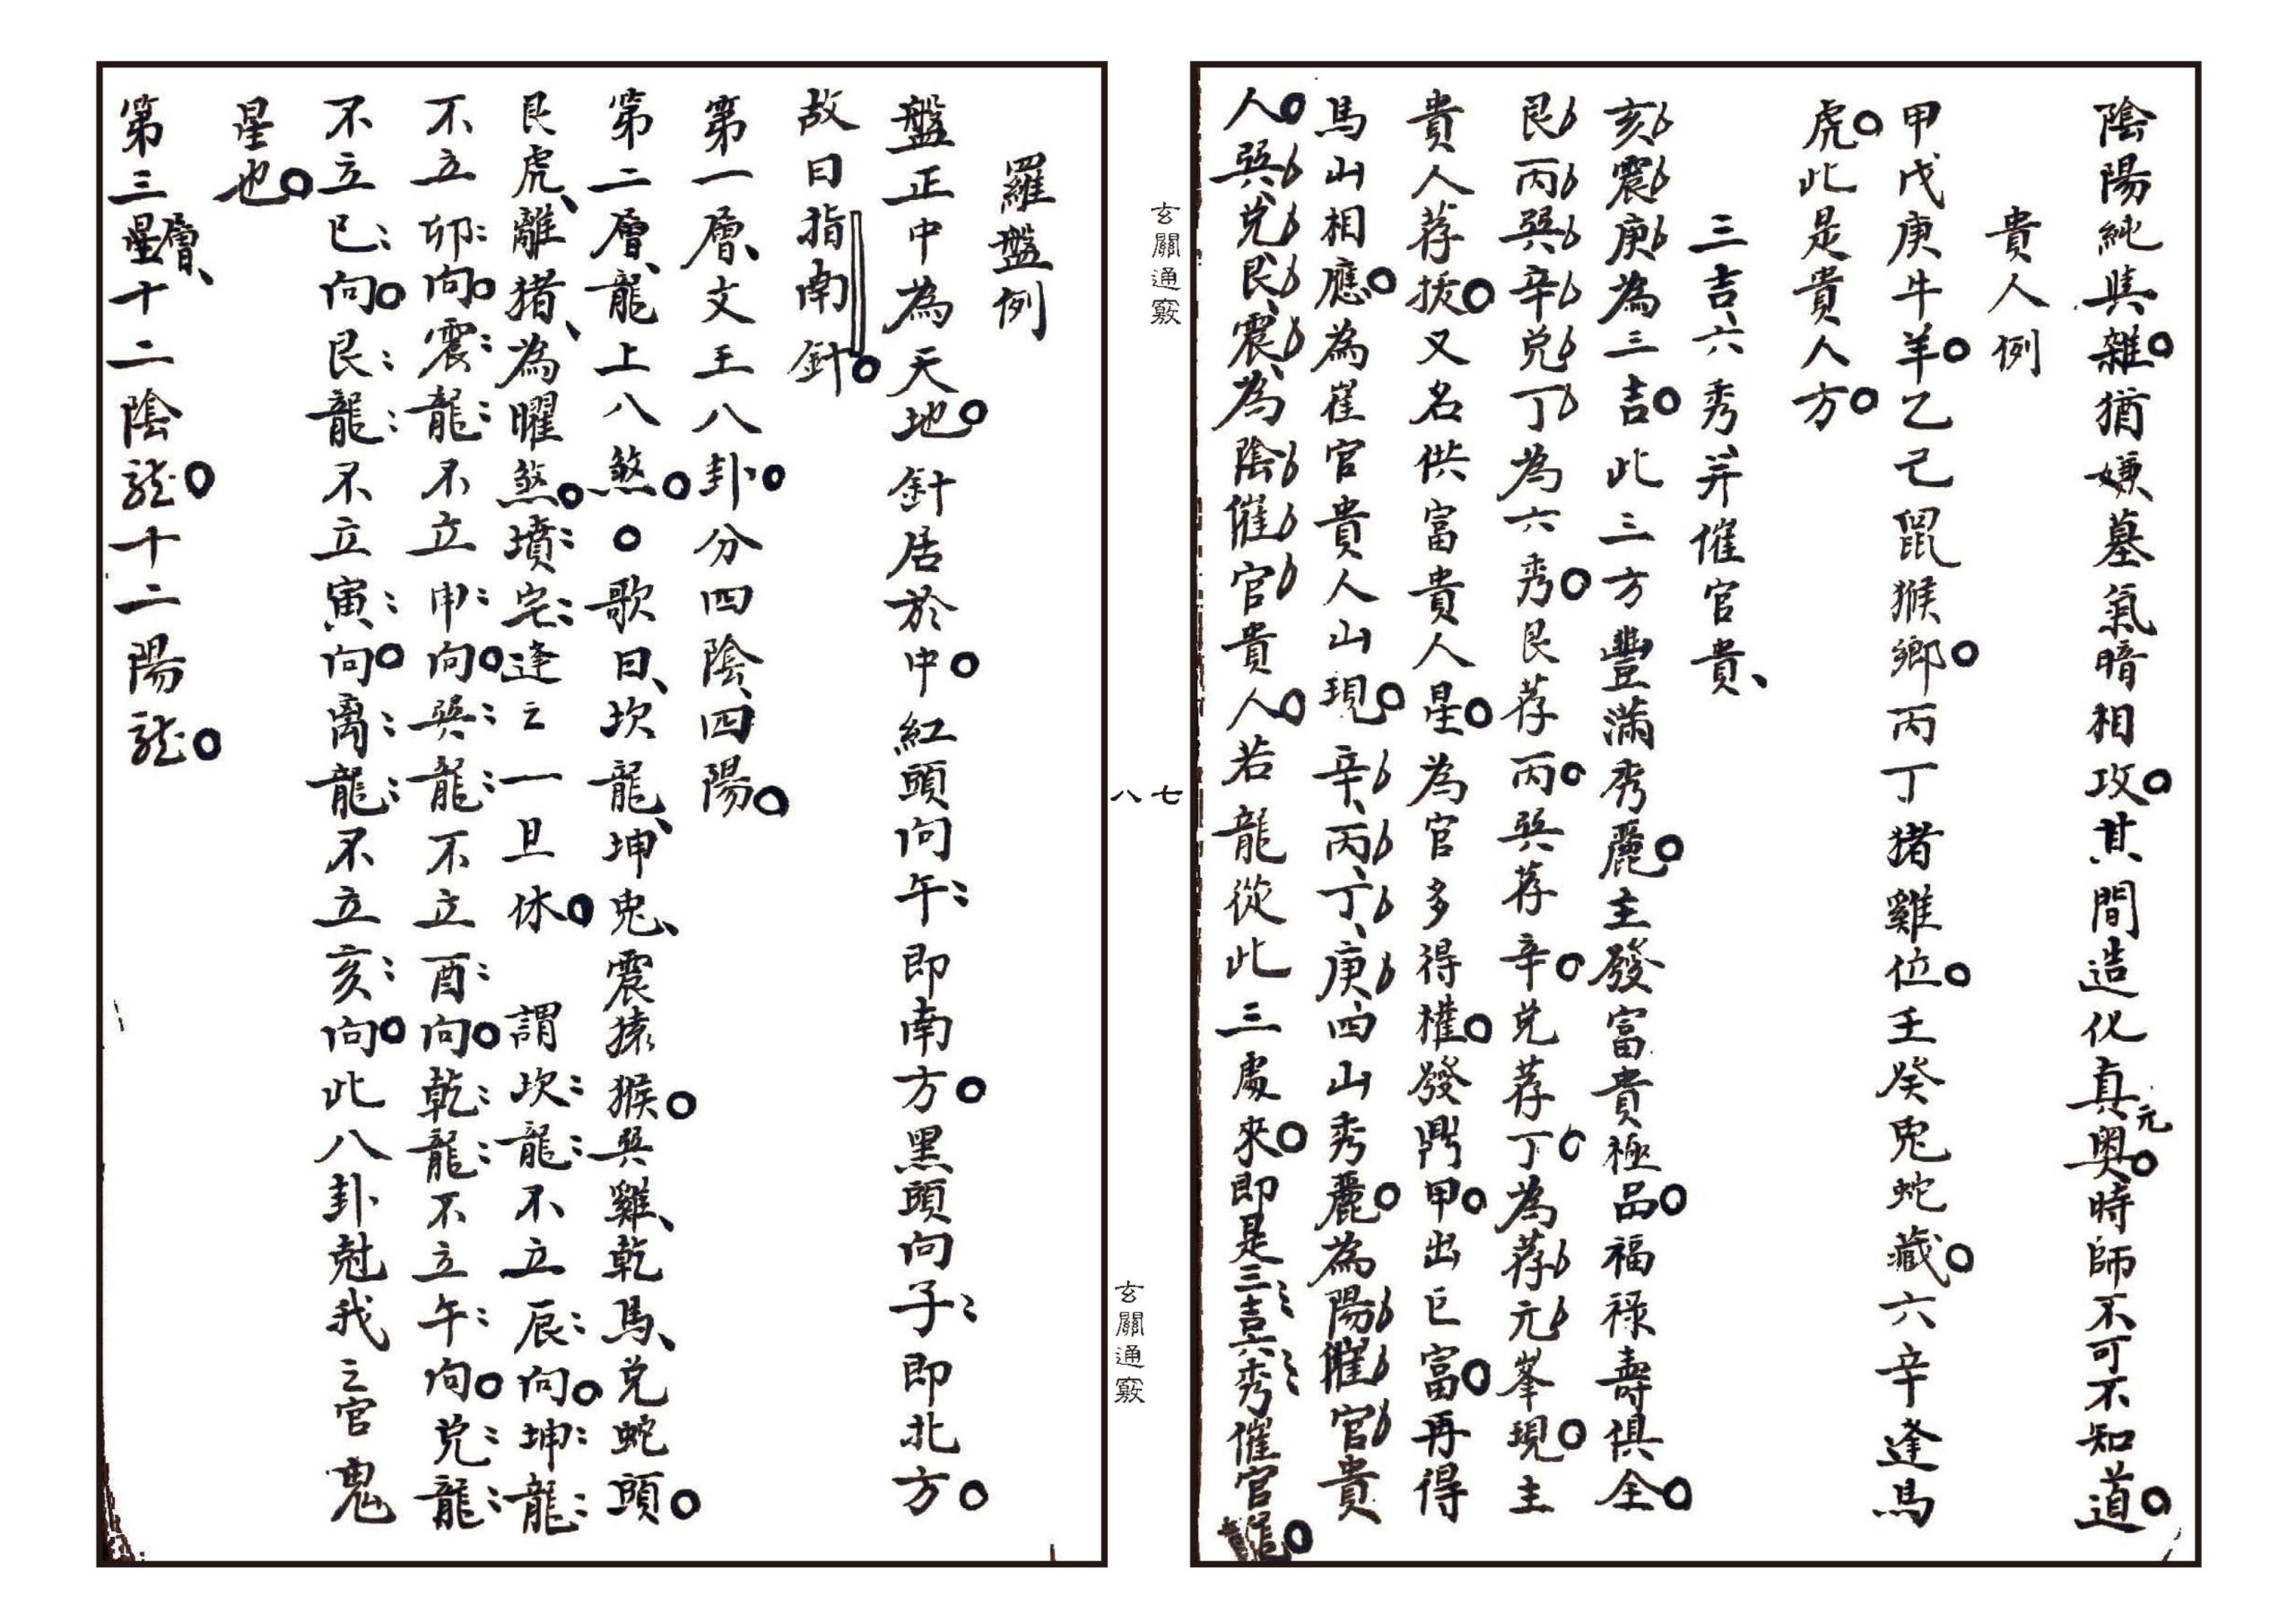 陰陽純與雜。猶嫌墓氣暗相攻。其間造化真元奧。時師不可不知道。
貴人例
甲戊庚牛羊。乙己鼠猴鄉。丙丁猪雞位。壬癸兎蛇藏。六辛逢馬
虎。此是貴人方。
三吉、六秀、并催官貴、
亥震庚為三吉。此三方豐滿秀麗。主發富貴極品。福祿壽俱全。
艮丙巽辛兌丁為六秀。艮荐丙。巽荐辛。兌荐丁為荐元峯現。主
貴人荐拔。又名供富貴人星。為官多得權。發鬥甲。出巨富。再得
馬山相應。為崔官貴人山現。辛、丙、丁、庚四山秀麗。為陽催官貴
人。巽、兌、艮、震、為陰催官貴人。若龍從此三處來。即是三吉六秀催官龍。
玄關通竅
七
八
玄關通竅
羅盤例
盤正中為天地。針居於中。紅頭向午即南方。黑頭向子即北方。
故曰指南針。
第一層、文王八卦。分四陰、四陽。
第二層、龍上八煞。。歌曰、坎龍、坤兎、震猿猴。巽雞、乾馬、兌蛇頭。
艮虎、離猪、為曜煞。墳宅逢之一旦休。謂坎龍不立辰向。坤龍
不立卯向。震龍不立申向。巽龍不立酉向。乾龍不立午向。兌龍
不立巳向。艮龍不立寅向。离龍不立亥向。此八卦尅我之官鬼
星也。
第三層、星十二陰龙。十二陽龙。